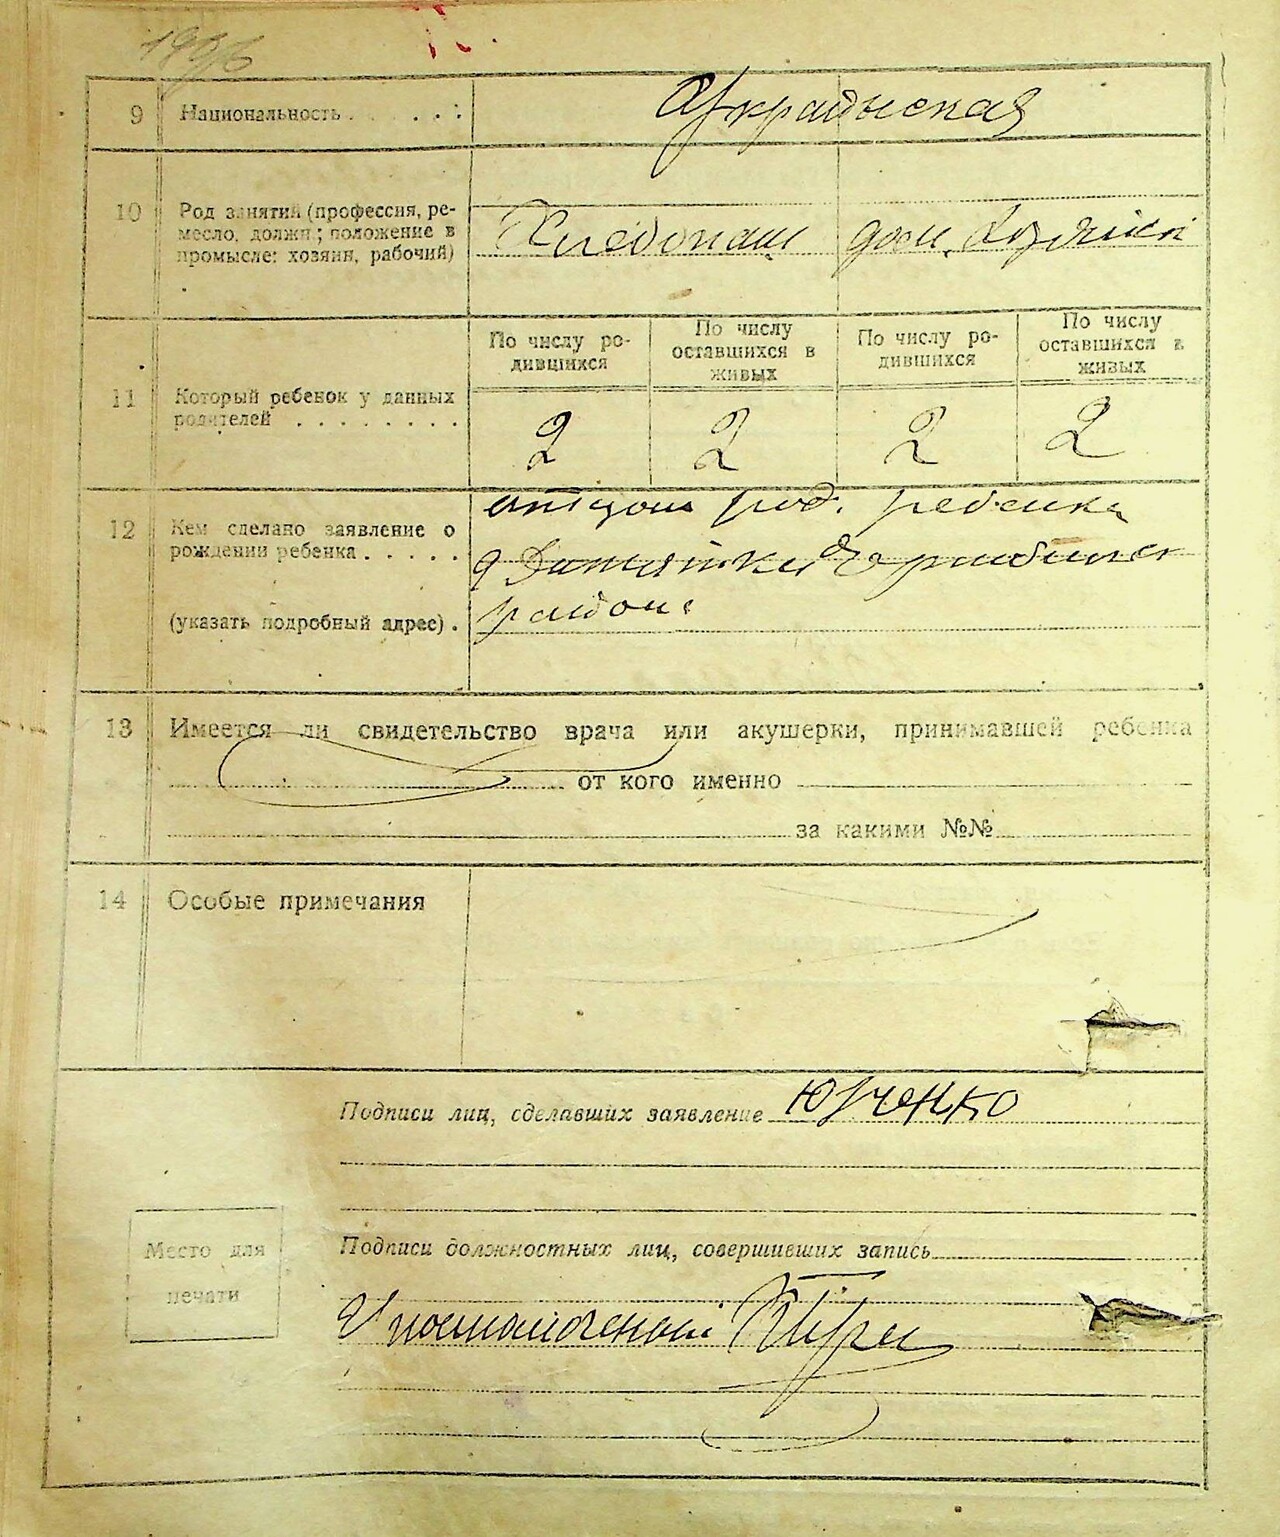 9 Национальность . . . . . . :
Украинская
10 Род занятий (профессия, ре-
месло, должн; положение в
промысле: хозяин, рабочий)
Хлебопаш дом. хозяйки
11 Который ребенок у данных
родителей . . . . . . . .
По числу ро-
дившихся
По числу
оставшихся в
живых
По числу ро-
дившихся
По числу
оставшихся в
живых
2 2 2 2
12 Кем сделано заявление о
рождении ребенка . . . . .
(указать подробный адрес) .
отцом род. ребенка
района
13 Имеется ли свидетельство врача или акушерки, принимавшей ребенка
от кого именно
за какими №№
14 Особые примечания
Подписи лиц, сделавших заявление Юрченко
Место для
печати
Подписи должностных лиц, совершивших запись